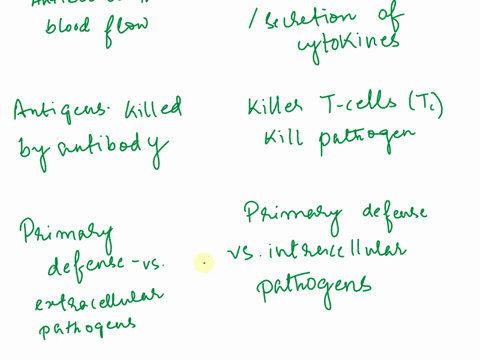 blood flow
/secretion of
cytokines
Antigens killed
by antibody
Killer T-cells (Tc)
kill pathogen
Primary
defense - vs.
extracellular
pathogens
Primary defense
vs. intracellular
pathogens